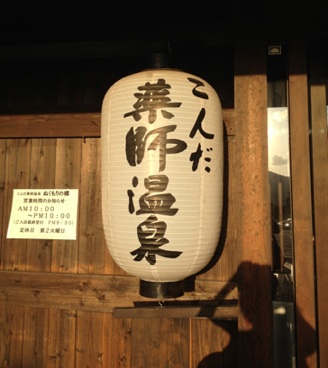 こんだ
薬師温泉
こんだ薬師温泉 ぬくもりの郷
営業時間のお知らせ
AM10:00
～PM10:00
定休日 第2火曜日